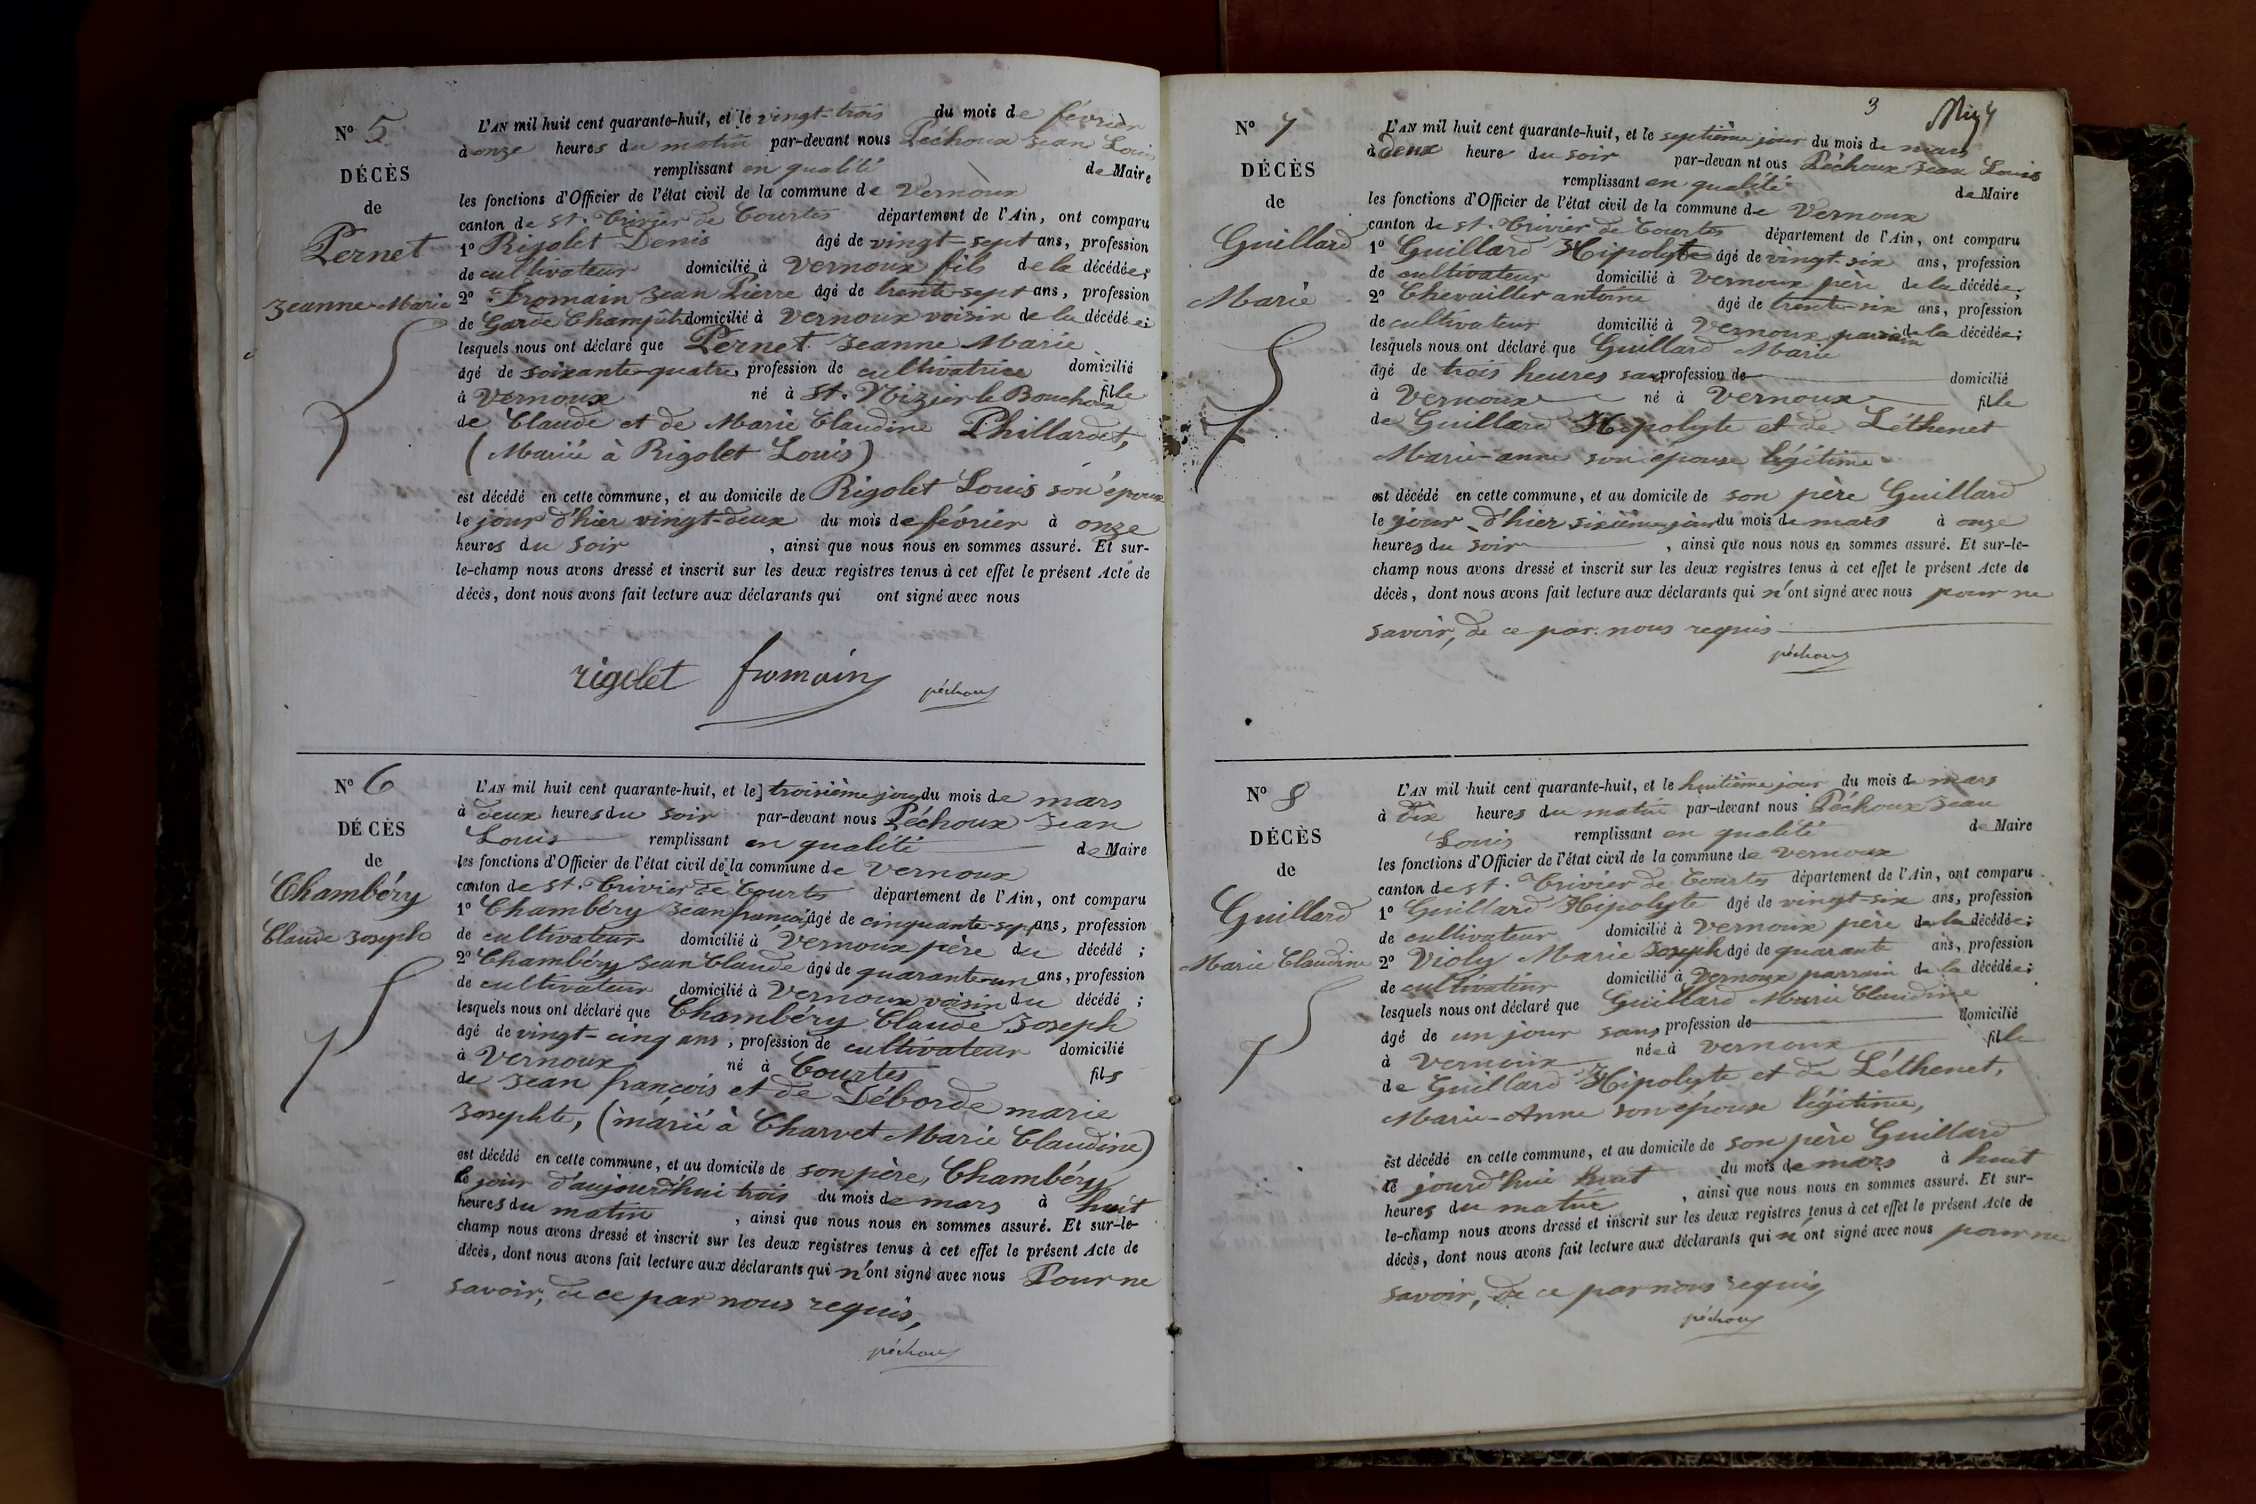 N° 5
DÉCÈS
de
Pernet
Jeanne-Marie
L'AN mil huit cent quarante-huit, et le vingt-trois du mois de février
à onze heures du matin par-devant nous Péchoux Jean Louis
remplissant en qualité de Maire
les fonctions d'Officier de l'état civil de la commune de Vernoux
canton de St. Trivier de Courtes département de l'Ain, ont comparu
1° Rigolet Denis âgé de vingt-sept ans, profession
de cultivateur domicilié à Vernoux fils de la décédée;
2° Fromain Jean Pierre âgé de trente-sept ans, profession
de Garde Champêtre domicilié à Vernoux voisin de la décédée;
lesquels nous ont déclaré que Pernet Jeanne Marie
âgé de soixante-quatre, profession de cultivatrice domicilié
à Vernoux né à St. Nizier le Bouchoux fille
de Claude et de Marie Claudine Phillardet,
(Mariée à Rigolet Louis)
est décédé en cette commune, et au domicile de Rigolet Louis son époux
le jour d'hier vingt-deux du mois de février à onze
heures du soir , ainsi que nous nous en sommes assuré. Et sur-
le-champ nous avons dressé et inscrit sur les deux registres tenus à cet effet le présent Acte de
décès, dont nous avons fait lecture aux déclarants qui ont signé avec nous
rigolet fromain péchoux
N° 6
DÉCÈS
de
Chambéry
Claude Joseph
L'AN mil huit cent quarante-huit, et le] troisième jour du mois de mars
à deux heures du soir par-devant nous Péchoux Jean
Louis remplissant en qualité de Maire
les fonctions d'Officier de l'état civil de la commune de Vernoux
canton de St. Trivier de Courtes département de l'Ain, ont comparu
1° Chambéry Jean françois âgé de cinquante-sept ans, profession
de cultivateur domicilié à Vernoux père du décédé ;
2° Chambéry Jean Claude âgé de quarante-un ans, profession
de cultivateur domicilié à Vernoux voisin du décédé ;
lesquels nous ont déclaré que Chambéry Claude Joseph
âgé de vingt-cinq ans, profession de cultivateur domicilié
à Vernoux né à Courtes fils
de Jean françois et de Déborde marie
Josephte, (marié à Charvet Marie Claudine)
est décédé en cette commune, et au domicile de son père, Chambéry
le jour d'aujourd'hui trois du mois de mars à huit
heures du matin , ainsi que nous nous en sommes assuré. Et sur-le-
champ nous avons dressé et inscrit sur les deux registres tenus à cet effet le présent Acte de
décès, dont nous avons fait lecture aux déclarants qui n'ont signé avec nous Pour ne
savoir, de ce par nous requis,
péchoux
3
N° 7
DÉCÈS
de
Guillard
Marie
L'AN mil huit cent quarante-huit, et le septième jour du mois de mars
à deux heure du soir par-devan nt ous Péchoux Jean Louis
remplissant en qualité de Maire
les fonctions d'Officier de l'état civil de la commune de Vernoux
canton de St. Trivier de Courtes département de l'Ain, ont comparu
1° Guillard Hipolyte âgé de vingt-six ans, profession
de cultivateur domicilié à Vernoux père de la décédée;
2° Chevailler antoine âgé de trente-six ans, profession
de cultivateur domicilié à Vernoux parrain de la décédée;
lesquels nous ont déclaré que Guillard Marie
âgé de trois heures sans profession de domicilié
à Vernoux né à Vernoux fille
de Guillard Hipolyte et de Léthenet
Marie-anne son epouse légitime
est décédé en cette commune, et au domicile de son père Guillard
le jour d'hier sixième jour du mois de mars à onze
heures du soir , ainsi que nous nous en sommes assuré. Et sur-le-
champ nous avons dressé et inscrit sur les deux registres tenus à cet effet le présent Acte de
décès, dont nous avons fait lecture aux déclarants qui n'ont signé avec nous pour ne
savoir, de ce par nous requis
péchoux
N° 8
DÉCÈS
de
Guillard
Marie Claudine
L'AN mil huit cent quarante-huit, et le huitième jour du mois d mars
à dix heures du matin par-devant nous Péchoux Jean
Louis remplissant en qualité de Maire
les fonctions d'Officier de l'état civil de la commune de Vernoux
canton de St. Trivier de Courtes département de l'Ain, ont comparu
1° Guillard Hipolyte âgé de vingt-six ans, profession
de cultivateur domicilié à Vernoux père de la décédée;
2° Violy Marie Joseph âgé de quarante ans, profession
de cultivateur domicilié à Vernoux parrain de la décédée;
lesquels nous ont déclaré que Guillard Marie Claudine
âgé de un jour sans profession de domicilié
à Vernoux née à Vernoux fille
de Guillard Hipolyte et de Léthenet,
Marie-Anne son épouse légitime,
est décédé en cette commune, et au domicile de son père Guillard
le jourd'hui huit du mois de mars à huit
heures du matin , ainsi que nous nous en sommes assuré. Et sur-
le-champ nous avons dressé et inscrit sur les deux registres tenus à cet effet le présent Acte de
décès, dont nous avons fait lecture aux déclarants qui n'ont signé avec nous pour ne
savoir, de ce par nous requis,
péchoux